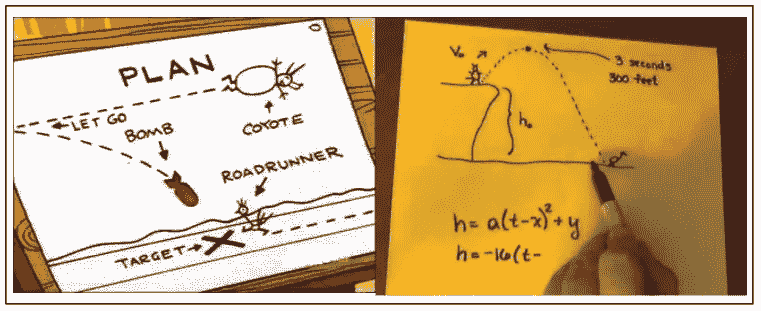 PLAN
LET GO
BOMB
COYOTE
ROADRUNNER
TARGET
V₀
3 seconds
300 feet
h₀
h = a(t-x)² + y
h = -16(t-